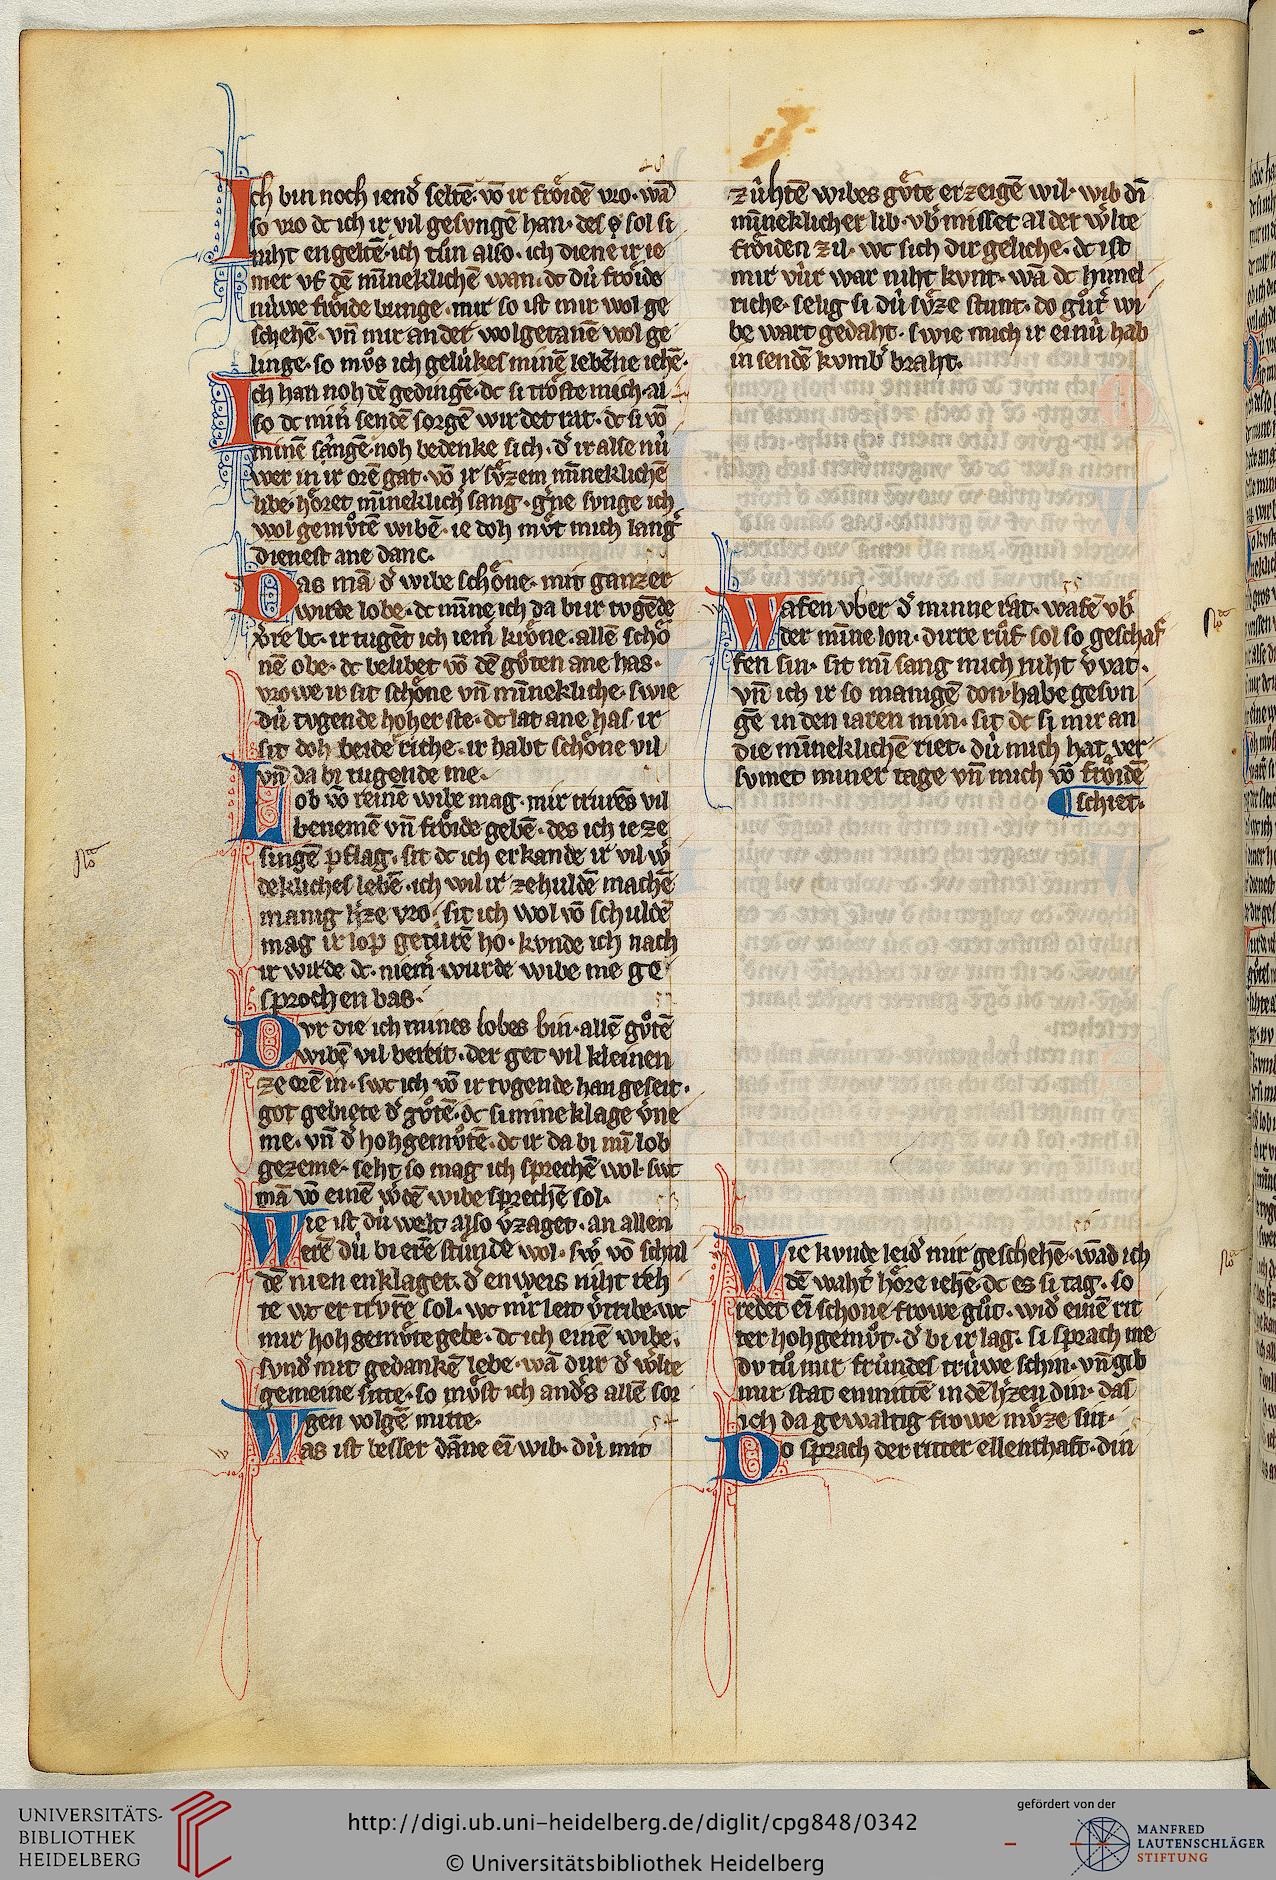 Ich bin noch iend͛ seltē vō ir froͤidē vro wā
so vro dc ich ir vil gesvngē han des sol si
niht engeltē ich tůn also ich diene ir ie
mer vf dē mīneklichē wan dc dú froͤide
núwe froͤide bringe mir so ist mir wol ge
schehē vn̄ mir an der wolgetanē wol ge
linge so mvͦs ich gelúkes minē lebēne iehē
Ich han noh dē gedingē dc si troͤste mich al
so dc min͛ sendē sorgē wirdet rat dc si vō
minē sāngē noh bedenke sich d͛ ir alse nú
wer in ir orē gat vō ir svͤzem mīneklichē
libe hoͤret mīneklich sang g͛ne synge ich
wol gemvͦtē wibē ie doh mvͤt mich lang͛
dienest ane danc
Das mā d͛ wibe schoͤne mit ganzer
wirde lobe dc mīne ich da bir tvgēde
v͛re bc ir tugēt ich iem͛ kroͤne allē schoͤ
nē obe dc belibet vō dē gvͦten ane has
vrowe ir sit schoͤne vn̄ mīnekliche swie
dú tvgende hoher ste dc lat ane has ir
sit doh beide riche ir habt schoͤne vil
vn̄ da bi tugende me
Lob vō reinē wibe mag mir trurēs vil
benemē vn̄ froͤide gebē des ich ie ze
singē pflag sit dc ich erkande ir vil w͛
dekliches lebē ich wil ir ze huldē machē
manig h͛ze vro sit ich wol vō schuldē
mag ir lop getúrē ho kvnde ich nach
ir wirde dc niem͛ wurde wibe me ge
sprochen bas
Dvr die ich mines lobes bin allē gvͦtē
wibē vil bereit der get vil kleinen
ze orē in swc ich vō ir tvgende han geseit
got gebiete d͛ gvͦtē dc si mine klage v͛ne
me vn̄ d͛ hohgemvͦtē dc ir da bi mī lob
gezeme seht so mag ich sprechē wol swc
mā vō einē w͛dē wibe sprechē sol
Wie ist dú welt also v͛zaget an allen
erē dú bi erē stūnde wol sw͛ vō schul
dē nien enklaget d͛ enweis niht reh
te wc er trvrē sol wc mir leit v͛tribe wc
mir hoh gemvͤte gebe dc ich einē wibe
svnd͛ mit gedankē lebe wā dur d͛ w͛lte
gemeine sitte so mvͤst ich and͛s allē sor
gen volgē mitte
Was ist besser dāne eī wib dú mit
zúhtē wibes gvͤte erzeigē wil wib dī
mīneklicher lib vb͛ misset al der w͛lte
froͤiden zil wc sich dir geliche dc ist
mir vúr war niht kvnt wā dc himel
riche selig si dú svͤze stunt do gvͦt͛ wi
be wart gedaht swie mich ir einú hab
in sendē kvmb͛ braht
Wafen vber d͛ minne rat wafē vb͛
der mīne lon dirre rvͦf sol so geschaf
fen sin sit mī sang mich niht v͛vat
vn̄ ich ir so manigē don habe gesvn
gē in den iaren min sit dc si mir an
die mīneklichē riet dú mich hat ver
svmet miner tage vn̄ mich vō froͤidē
schiet
Wie kvnde leid͛ mir geschehē wād ich
dē waht͛ hoͤre iehē dc es si tag so
redet eī schone frowe gvͦt wid͛ einē rit
ter hohgemvͦt d͛ bi ir lag si sprach me
dv tvͦ mir frúndes trúwe schin vn̄ gib
mir stat enmittē in dē h͛zen din das
ich da gewaltig frowe mvͤze sin
Do sprach der ritter ellenthaft din
UNIVERSITÄTS-
BIBLIOTHEK
HEIDELBERG
http://digi.ub.uni-heidelberg.de/diglit/cpg848/0342
© Universitätsbibliothek Heidelberg
gefördert von der
MANFRED
LAUTENSCHLÄGER
STIFTUNG